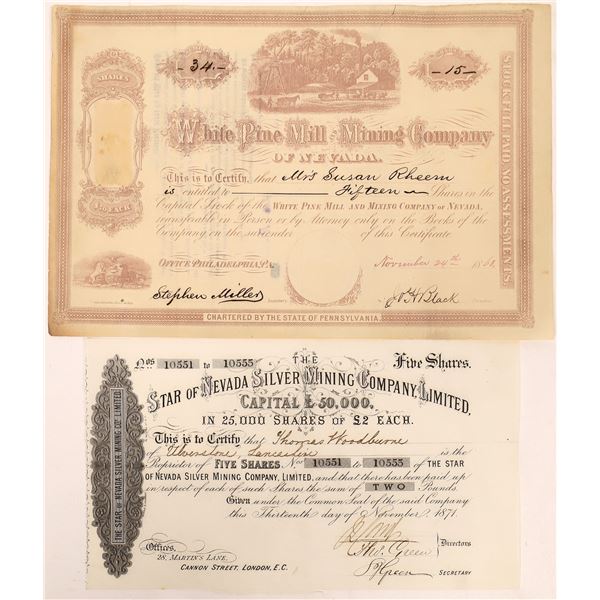 SHARES
34
15
White Pine Mill and Mining Company
OF NEVADA.
This is to Certify, that Mrs Susan Rheem
is entitled to Fifteen Shares in the
Capital Stock of the WHITE PINE MILL AND MINING COMPANY OF NEVADA,
transferable in Person or by Attorney only on the Books of the
Company on the surrender of this Certificate.
EACH
STOCK FULL PAID NO ASSESSMENTS
OFFICE PHILADELPHIA, PA.
November 24th
Stephen Miller
Black
CHARTERED BY THE STATE OF PENNSYLVANIA.
Nos 10551 to 10555 THE Five Shares.
STAR OF NEVADA SILVER MINING COMPANY, LIMITED.
CAPITAL £50,000.
IN 25,000 SHARES OF £2 EACH.
This is to Certify that Thomas Woodburne
of Ulverstone, Lancashire is the
Proprietor of FIVE SHARES, Nos 10551 to 10555 OF THE STAR
OF NEVADA SILVER MINING COMPANY, LIMITED, and that there has been paid up
in respect of each of such Shares the sum of TWO Pounds.
Given under the Common Seal of the said Company
this Thirteenth day of November 1871.
THE STAR OF NEVADA SILVER MINING CO. LIMITED.
Directors
Green
Green SECRETARY
Offices,
28, MARTIN'S LANE,
CANNON STREET, LONDON, E.C.